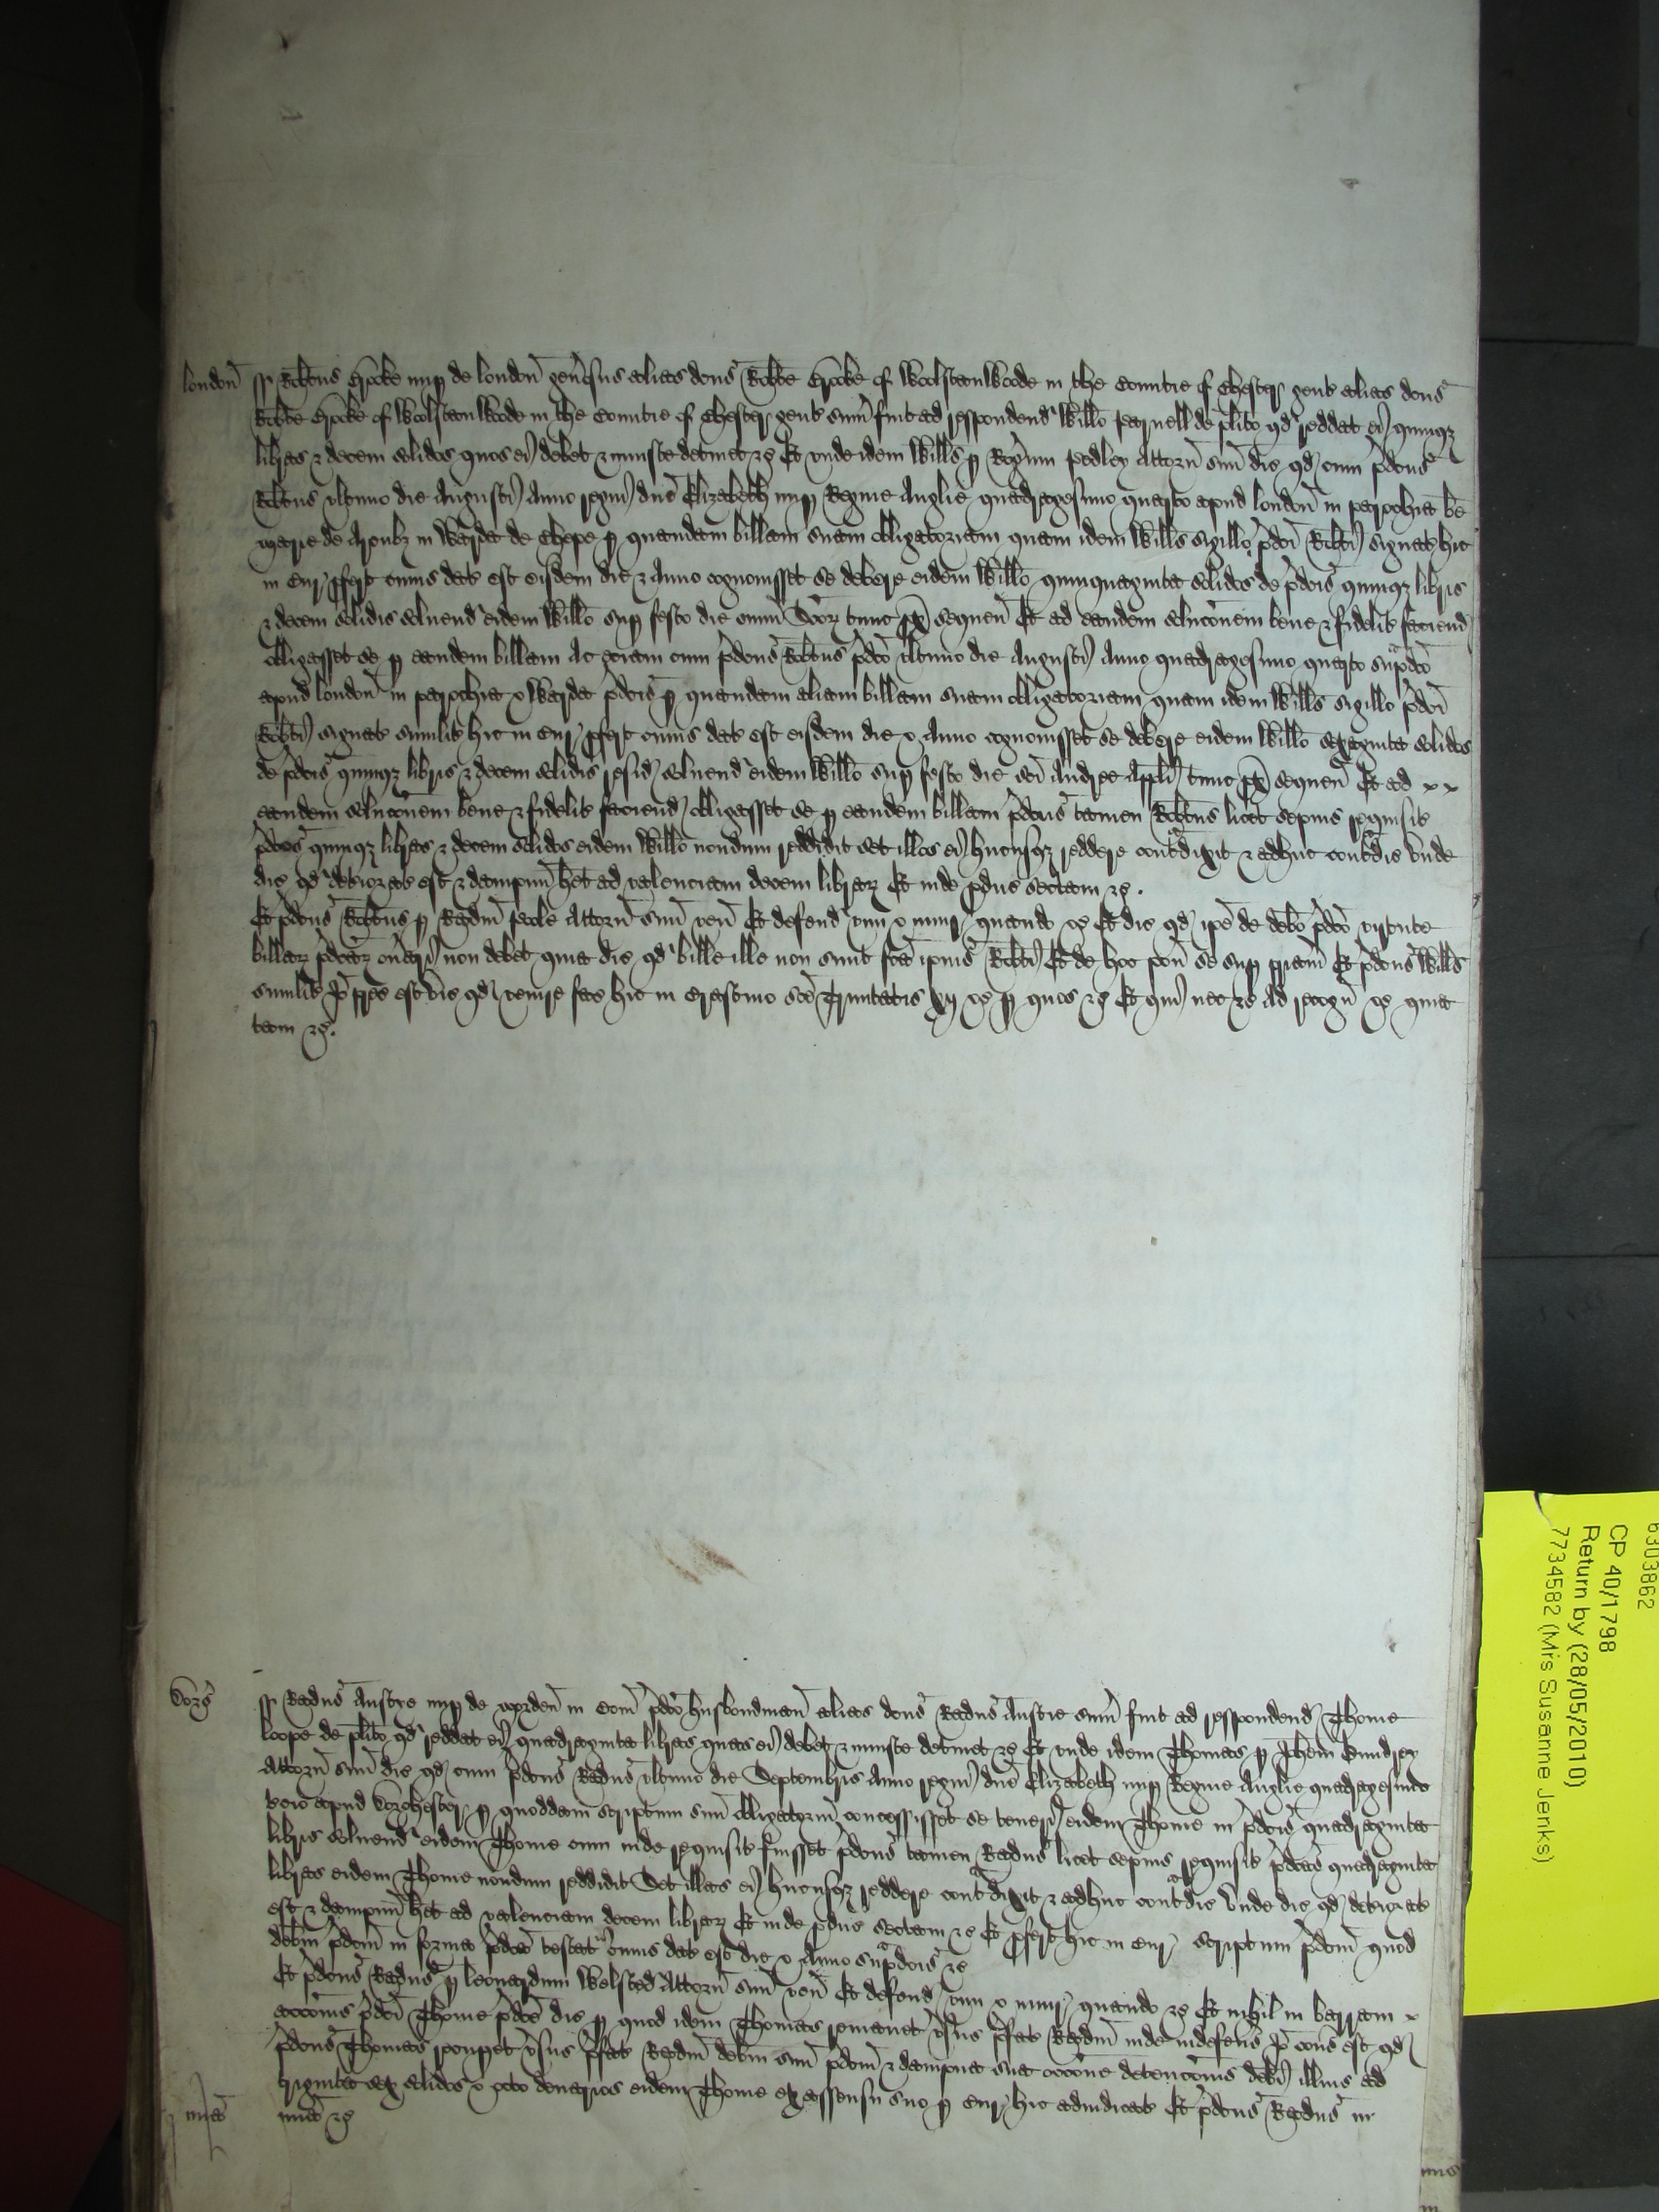 london ss Robtus Croke nup de london gen'osus alias dcus Robte Croke of Woolstanwoode in the Countie of Chester gent alias dcus
Robte Croke of Woolstanwoode in the Countie of Chester gent sum fuit ad respondend Willo de plito qd reddat ei quinqz
libras & decem solidos quos ei debet & iniuste detinet &c Et unde idem Wills p Rogum Pedley Attorn suu dic qd cum pdcus
Robtus ultimo die Augusti Anno regni dne Elizabeth nup Regine Anglie quadragesimo quarto apud london in parochia be
marie de Arcubz in Warda de Chepe p quandam billam suam obligatoriam quam idem Wills sigillo pdci Robti signat hic
in cur pfert cuius dat est eisdem die & anno cognovisset se debere eidem Willo quinquaginta solidos de pdcis quinqz libris
& decem solidis solvend eidem Willo sup festo die omi Scor tunc px sequen Et ad eandem soluconem bene & fidelit faciend
obligasset se p eandem billam Ac eciam cum pdcus Robtus pdco ultimo die Augusti Anno quadragesimo quarto supdco
apud london in parochia & Warda pdcis p quandam aliam billam suam obligatoriam quam idem Wills sigillo pdci
Robti signat similit hic in cur pfert cuius dat est eisdem die & Anno cognovisset se debere eidem Willo sexaginta solidos
de pdcis quinqz libris & decem solidis resid solvend eidem Willo sup festo die sci Andree Appli tunc px sequen Et ad x x
eandem soluconem bene & fidelit faciend obligasset se p eandem billam pdcus tamen Robtus licet sepius requisit
pdcos quinqz libras & decem solidos eidem Willo nondum reddidit set illos ei hucusqz reddere contradixit & adhuc contradic Unde
dic qd deteriorat est & dampnu het ad valenciam decem librar Et inde pduc sectam &c.
Et pdcus Robtus p Radm Attorn suu ven Et defend vim & iniur quando &c Et dic qd ipe de debo pdco virtute
billar pdcar onerari non debet quia dic qd bille ille non sunt fca ipius Robti Et de hoc pon se sup priam Et pdcus Wills
similit Io prec est vic qd venire fac hic in Crastino sce Trinitatis xij &c p quos &c Et qui nec &c Ad recogn &c quia
tam &c.
Dors ss Radus Austie nup de in Com pdco husbondman alias dcus Radus Austie sum fuit ad respondend Thome
loope de plito qd reddat ei quadraginta libras quas ei debet & iniuste detinet &c Et unde idem Thomas p Thom
Attorn suu dic qd cum pdcus Radus ultimo die Septembris Anno regni dne Elizabeth nup Regine Anglie quadragesimo
apud Dorchester p quoddam scriptum suu obligatoriu concessisset se teneri eidem Thome in pdcis quadraginta
libris solvend eidem Thome cum inde requisit fuisset pdcus tamen Radus licet sepius requisit pdcas quadraginta
libras eidem Thome nondum reddidit Set illas ei hucusqz reddere contradixit & adhuc contradic Unde dic qd deteriorat
est & dampnu het ad valenciam decem librar Et inde pduc sectam &c Et pfert hic in cur scriptum pdcm quod
debm pdcm in forma pdca testat cuius dat est die & Anno supdcis &c
Et pdcus Radus p leonardum Welsted Attorn suu ven Et defend vim & iniur quando &c Et nihil in barram &
accionis pdci Thome pdce dic p quod idem Thomas remanet vsus pfat Radm inde indefens Io cons est qd
pdcus Thomas recupet vsus pfat Radm debm suu pdcm & dampna sua occone detencionis debi illius ad
triginta sex solidos & octo denarios eidem Thome ex assensu suo p cur hic adiudicat Et pdcus Radus in
mia mia &c
6303862
CP 40/1798
Return by (28/05/2010)
7734582 (Mrs Susanne Jenks)